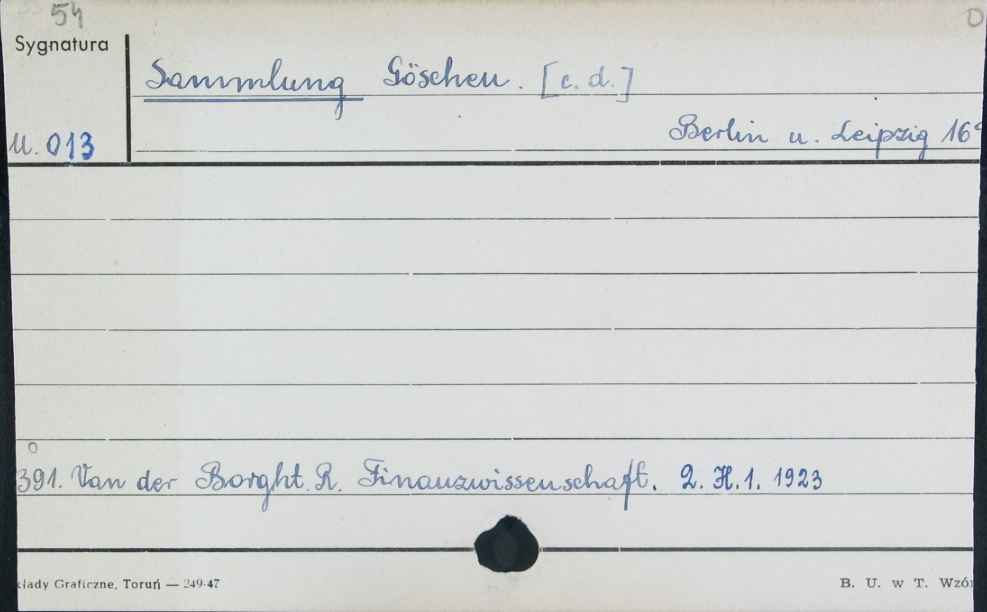 54
Sygnatura
Sammlung Göschen. [c. d.]
Berlin u. Leipzig 16°
U. 013
391. Van der Borght. R. Finanzwissenschaft. 2. H.1. 1923
łady Graficzne, Toruń — 249-47
B. U. w T. Wzór